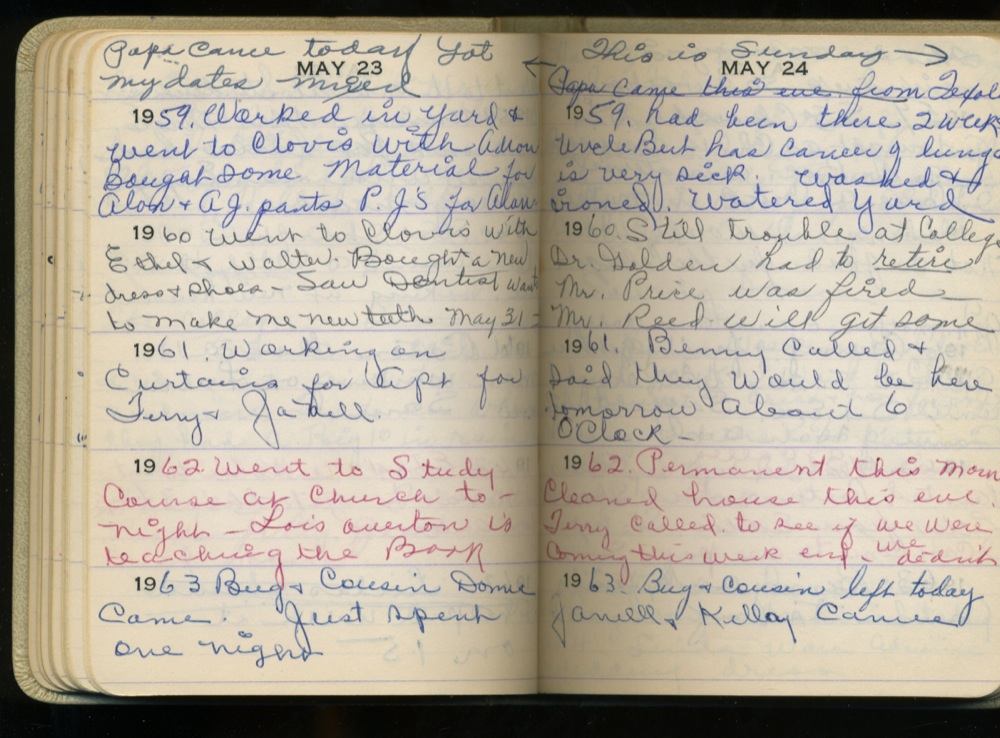 Papa Came today Got
MAY 23
my dates mixed
1959. Worked in Yard &
went to Clovis with Adron
Bought some Material for
Alan & A.J. pants P.J's for Alan
1960 Went to Clovis with
Ethel & Walter. Bought a new
dress & shoes - Saw Dentist wants
to make me new teeth May 31 -
1961. Working on
Curtains for Apt for
Terry & Janell.
1962 Went to Study
Course at Church to -
night - Lois Overton is
teaching the Book
1963 Bug & Cousin Dome
Came. Just spent
one night
This is Sunday →
MAY 24
← Papa Came this eve from Texola
1959. had been there 2 weeks
Uncle Bert has cancer of lungs
is very sick. Washed &
ironed. Watered Yard
1960. Still trouble at College
Dr. Golden had to retire
Mr. Price was fired -
Mr. Reed will get some
1961. Benny Called &
said they would be here
tomorrow about 6
O'Clock -
1962. Permanent this morn
Cleaned house this eve.
Terry called to see if we were
coming this week end - we didn't
1963. Bug & Cousin left today
Janell & Kelley Came